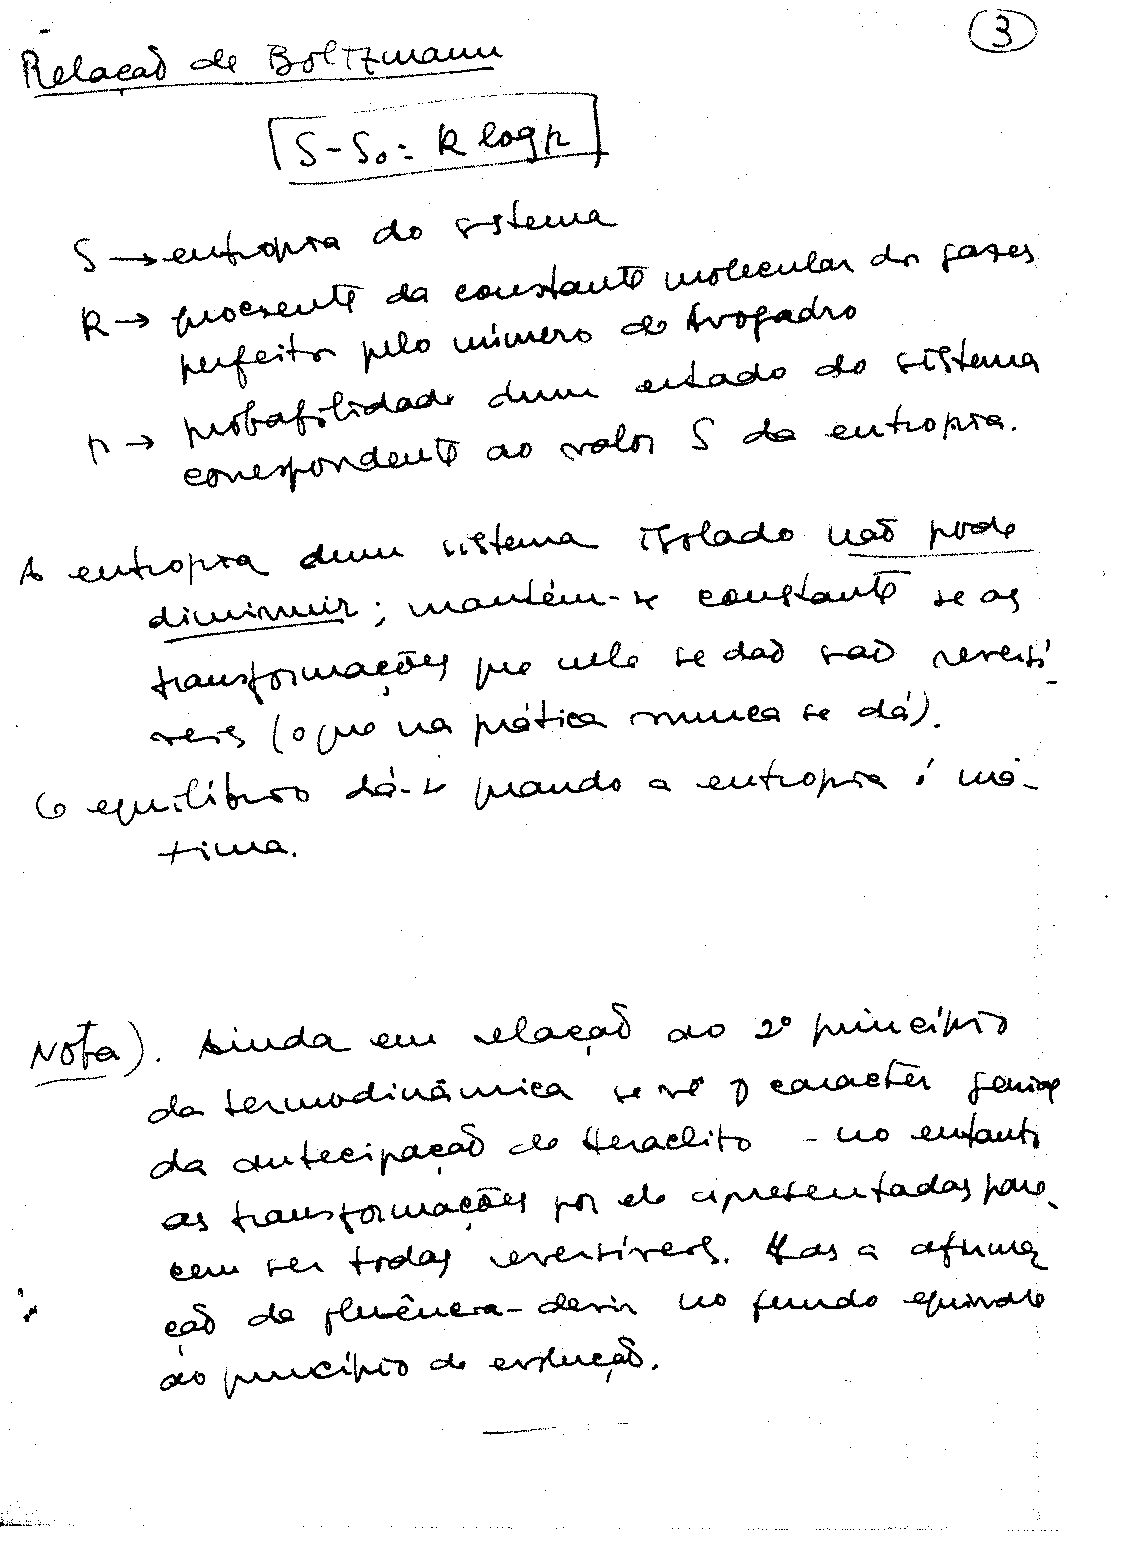 3
Relação de Boltzmann
S-S₀ = k log p
S → entropia do sistema
k → quociente da constante molecular dos gases
perfeitos pelo número de Avogadro
p → probabilidade dum estado do sistema
correspondente ao valor S da entropia.
A entropia dum sistema isolado não pode
diminuir; mantém-se constante se as
transformações que nele se dão são reversí-
veis (o que na prática nunca se dá).
O equilíbrio dá-se quando a entropia é má-
xima.
Nota). Ainda em relação ao 2º princípio
da termodinâmica se vê o caracter genial
da antecipação de Heraclito - no entanto
as transformações por ele apresentadas pare-
cem ser todas reversíveis. Mas a afirma
ção da fluência-devir no fundo equivale
ao princípio de evolução.